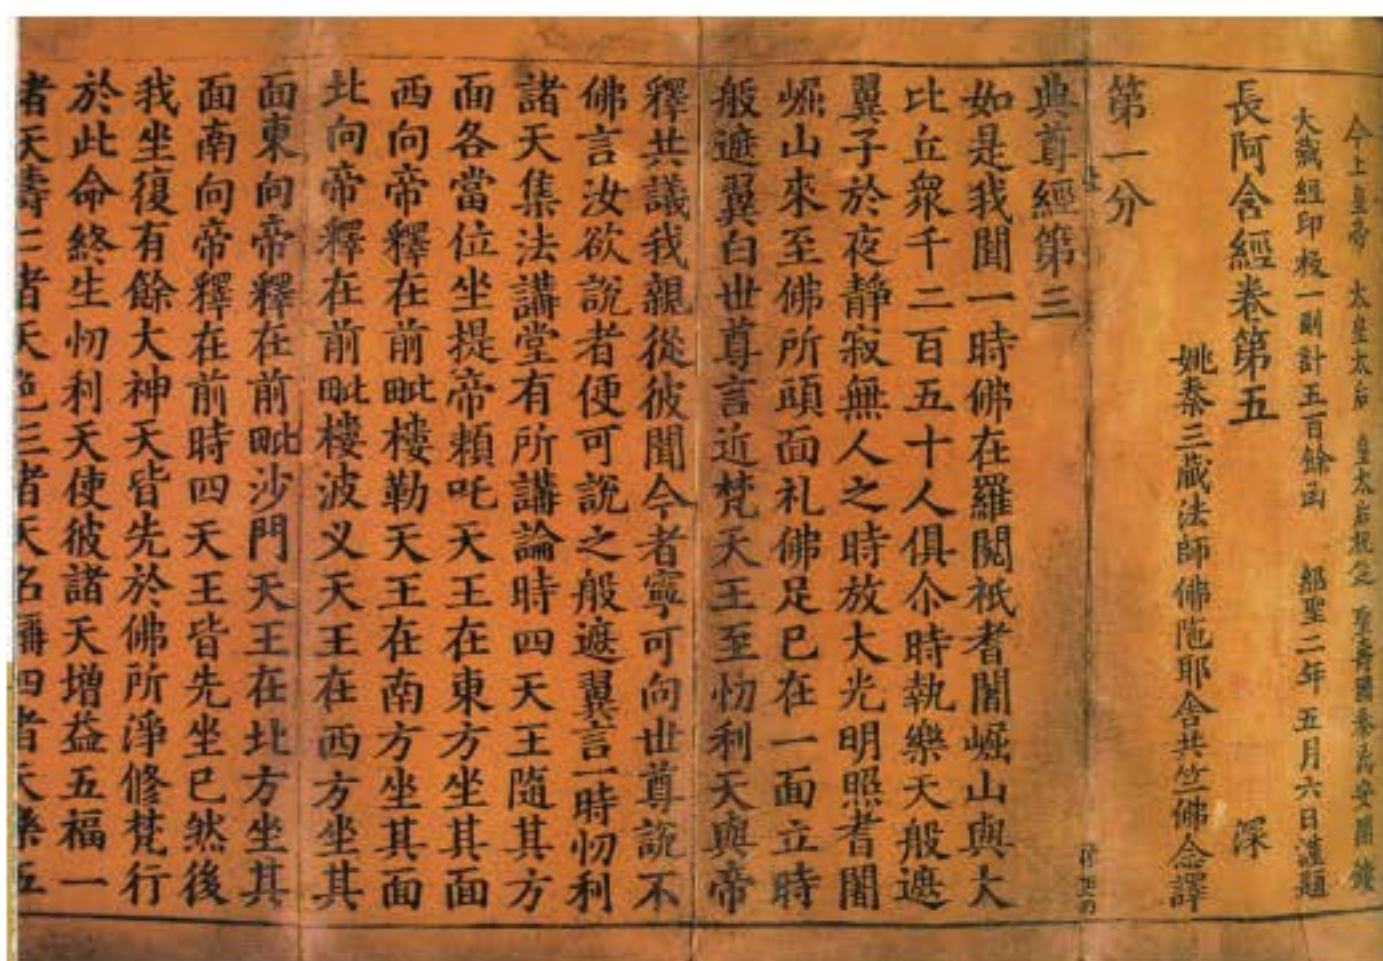 今上皇帝　太皇太后　皇太后祝延　聖壽國泰民安開鏤
大藏經印板一副計五百餘函　紹聖二年五月六日謹題
長阿含經卷第五　深
姚秦三藏法師佛陁耶舍共竺佛念譯
第一分
典尊經第三
如是我聞一時佛在羅閱祇耆闍崛山與大
比丘衆千二百五十人俱尒時執樂天般遮
翼子於夜靜寂無人之時放大光明照耆闍
崛山來至佛所頭面礼佛足已在一面立時
般遮翼白世尊言近梵天王至忉利天與帝
釋共議我親從彼聞今者寧可向世尊說不
佛言汝欲說者便可說之般遮翼言一時忉利
諸天集法講堂有所講論時四天王隨其方
面各當位坐提帝賴吒天王在東方坐其面
西向帝釋在前毗樓勒天王在南方坐其面
北向帝釋在前毗樓波叉天王在西方坐其
面東向帝釋在前毗沙門天王在北方坐其
面南向帝釋在前時四天王皆先坐已然後
我坐復有餘大神天皆先於佛所淨修梵行
於此命終生忉利天使彼諸天增益五福一
者天壽二者天色三者天名稱四者天樂五